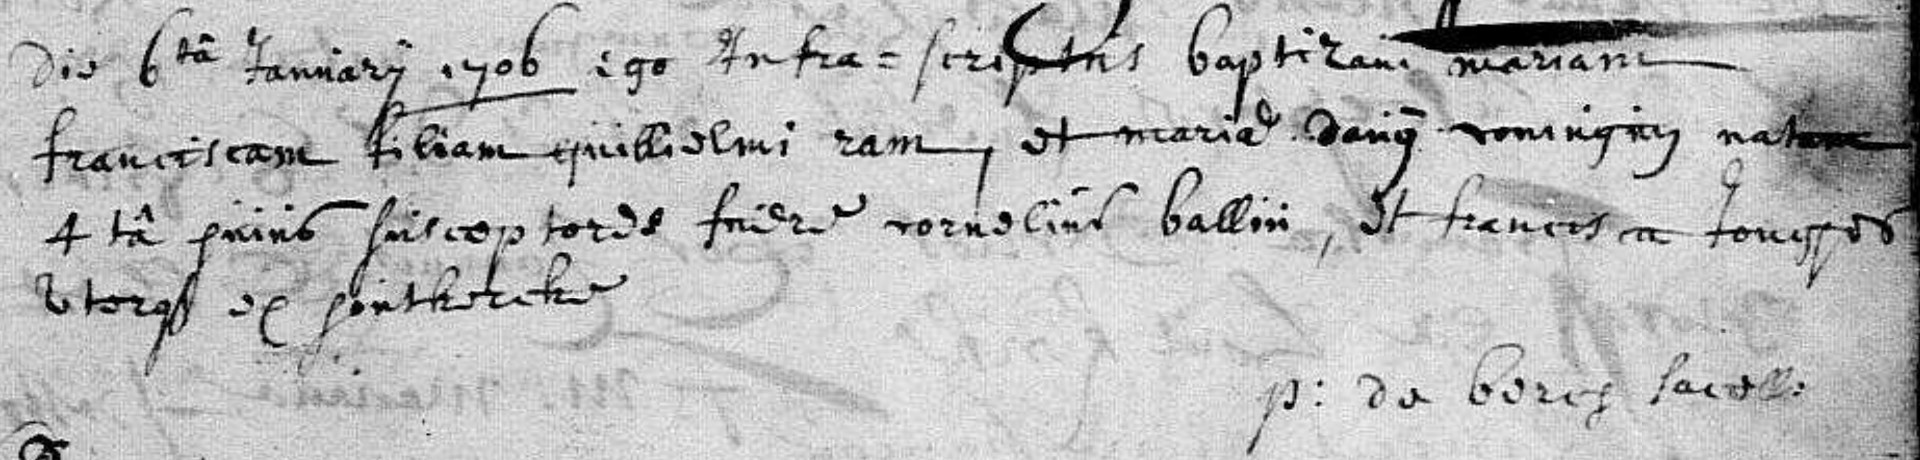 Die 6tâ Januarÿ 1706 ego Infra = scriptus baptizavi mariam
franciscam filiam guillielmi ram, et mariæ danÿ coniugum natam
4 tâ huius susceptores fuere cornelius ballin, et francisca
uterqꝫ ex
p: de berch sacell: